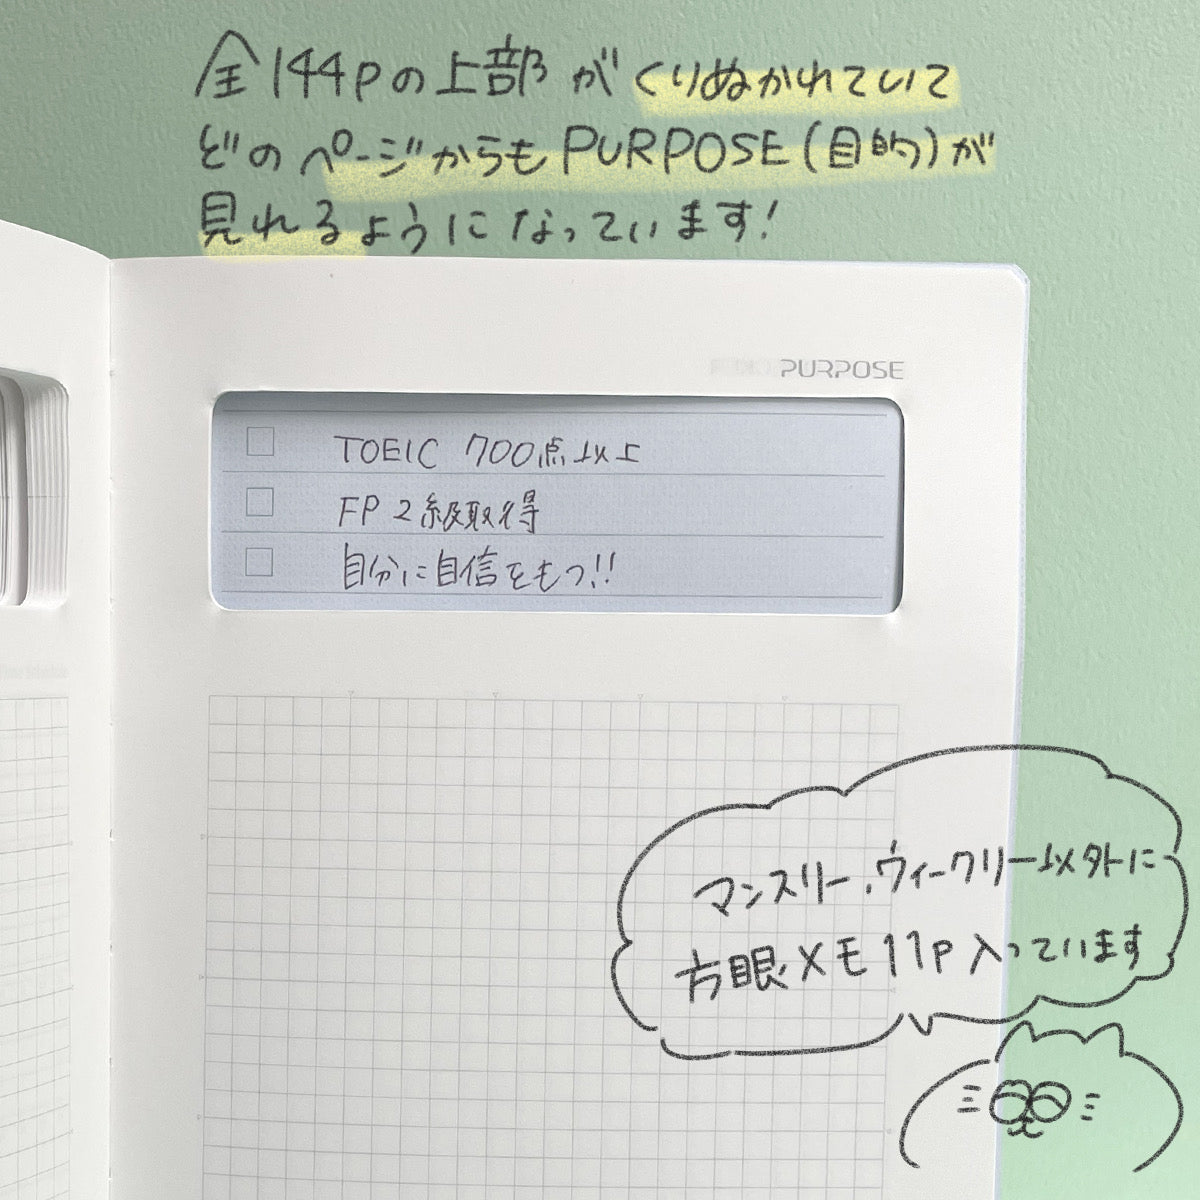 全144pの上部がくりぬかれていて
どのページからもPURPOSE(目的)が
見れるようになっています!
PURPOSE
TOEIC 700点以上
FP 2級取得
自分に自信をもつ!!
マンスリー、ウィークリー以外に
方眼メモ11p入っています